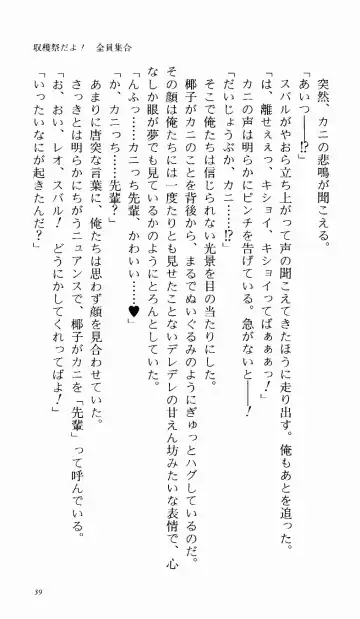 収穫祭だよ！　全員集合
突然、カニの悲鳴が聞こえる。
「あいつ――⁉」
スバルがやおら立ち上がって声の聞こえてきたほうに走り出す。俺もあとを追った。
「は、離せぇぇっ、キショイ、キショイってばぁぁぁっ！」
カニの声は明らかにピンチを告げている。急がないと――！
「だいじょうぶか、カニ……⁉」
そこで俺たちは信じられない光景を目の当たりにした。
椰子がカニのことを背後から、まるでぬいぐるみのようにぎゅっとハグしているのだ。
その顔は俺たちには一度たりとも見せたことないデレデレの甘えん坊みたいな表情で、心
なしか眼が夢でも見ているかのようにとろんとしていた。
「んふっ……カニっち先輩、かわいい……♥」
「か、カニっち……先輩？」
あまりに唐突な言葉に、俺たちは思わず顔を見合わせていた。
さっきとは明らかにちがうニュアンスで、椰子がカニを「先輩」って呼んでいる。
「お、おい、レオ、スバル！　どうにかしてくれってばよ！」
「いったいなにが起きたんだ？」
39